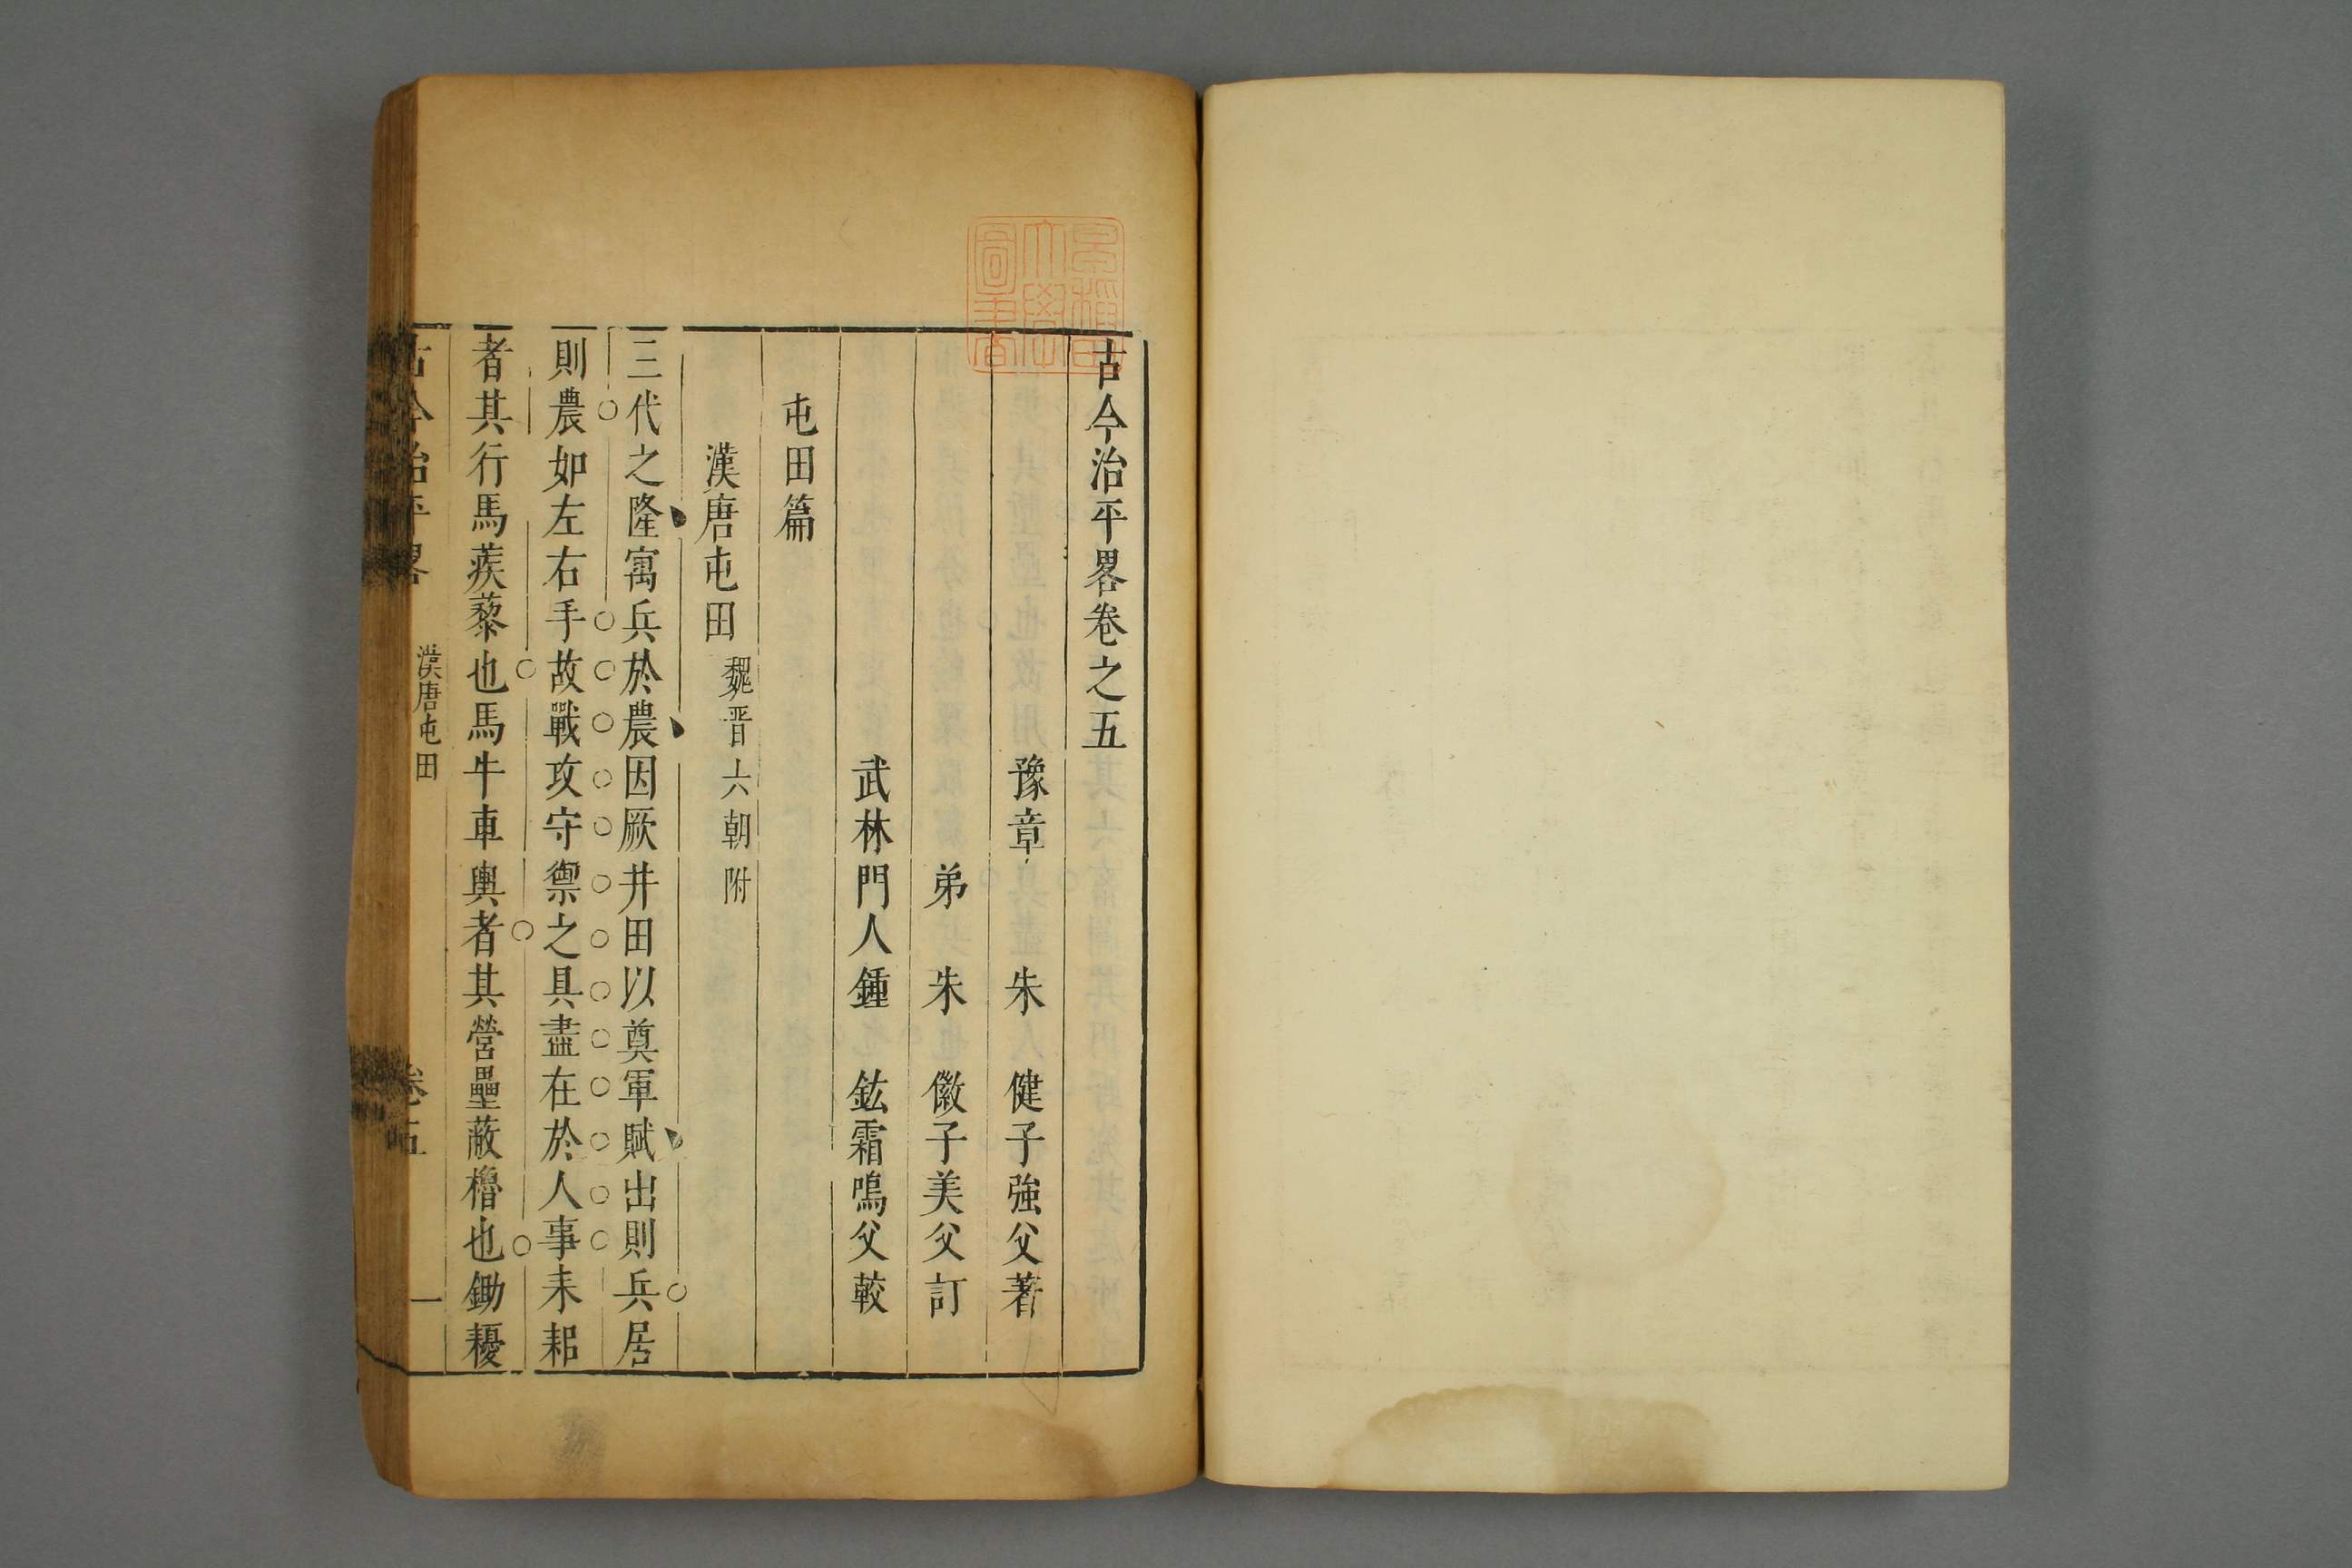 早稻田
大學
圖書
古今治平畧卷之五
豫章 朱 健子強父著
弟 朱 徽子美父訂
武林門人鍾 鈜霜鳴父較
屯田篇
漢唐屯田 魏晋六朝附
三代之隆寓兵於農因厥井田以奠軍賦出則兵居
則農如左右手故戰攻守禦之具盡在於人事耒耜
者其行馬蒺藜也馬牛車輿者其營壘蔽櫓也鋤耰
古今治平畧 漢唐屯田 卷五 一